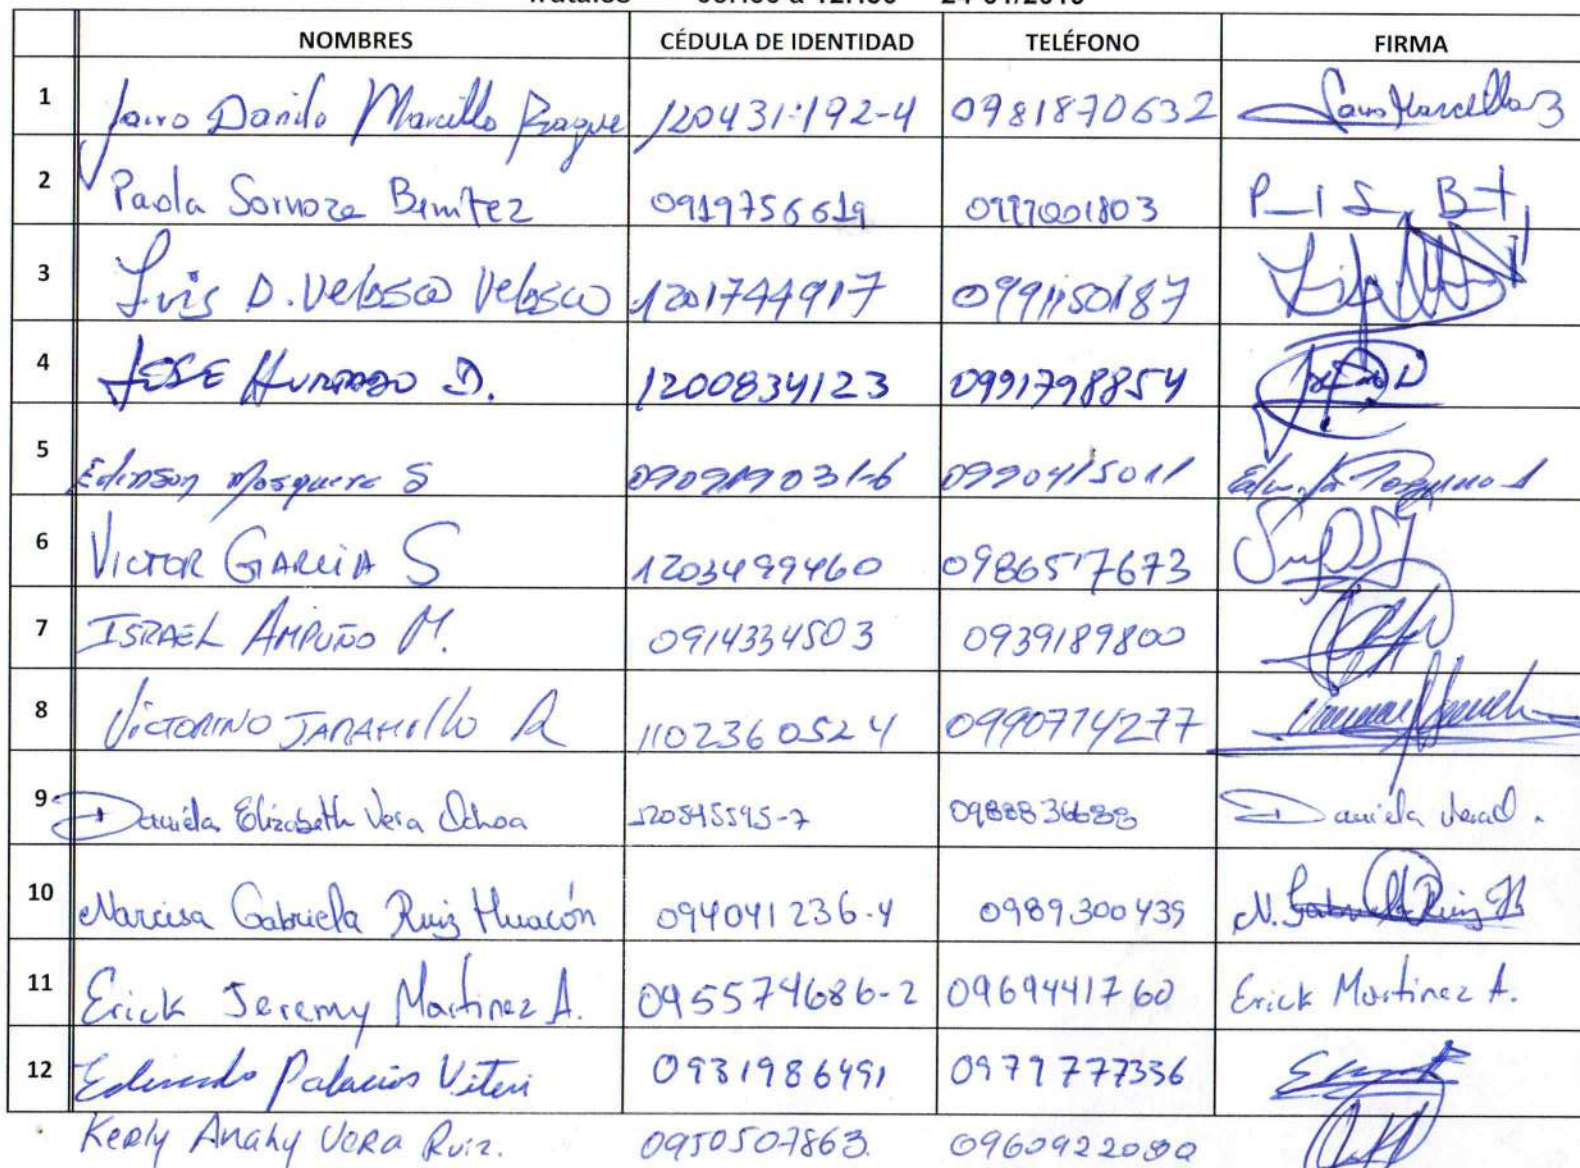 24-01/2019
NOMBRES CÉDULA DE IDENTIDAD TELÉFONO FIRMA
1 Danilo Marcillo 120431192-4 0981870632
2 Paola Sornoza Benitez 0919756619 P
3 Luis D. Velasco Velasco 1201744917 0991150187
4 JOSE HURTADO D. 1200834123 0991798854
5 Edinson Mosquera S 0990415011
6 VICTOR GARCIA S 1203499460 0986517673
7 ISRAEL AMPUÑO M. 0914334503 0939189800
8 VICTORINO JARAMILLO R 1102360524 0990714277
9 Daniela Elizabeth Vera Ochoa Daniela
10 Narcisa Gabriela Ruiz Huacón 094041236-4 0989300439 N. Gabriela Ruiz H
11 Erick Jeremy Martinez A. 095574686-2 0969441760 Erick Martinez A.
12 Eduardo Palacios Viteri 0931986491 0979777336
Kerly Anahy Vera Ruiz. 0950507863